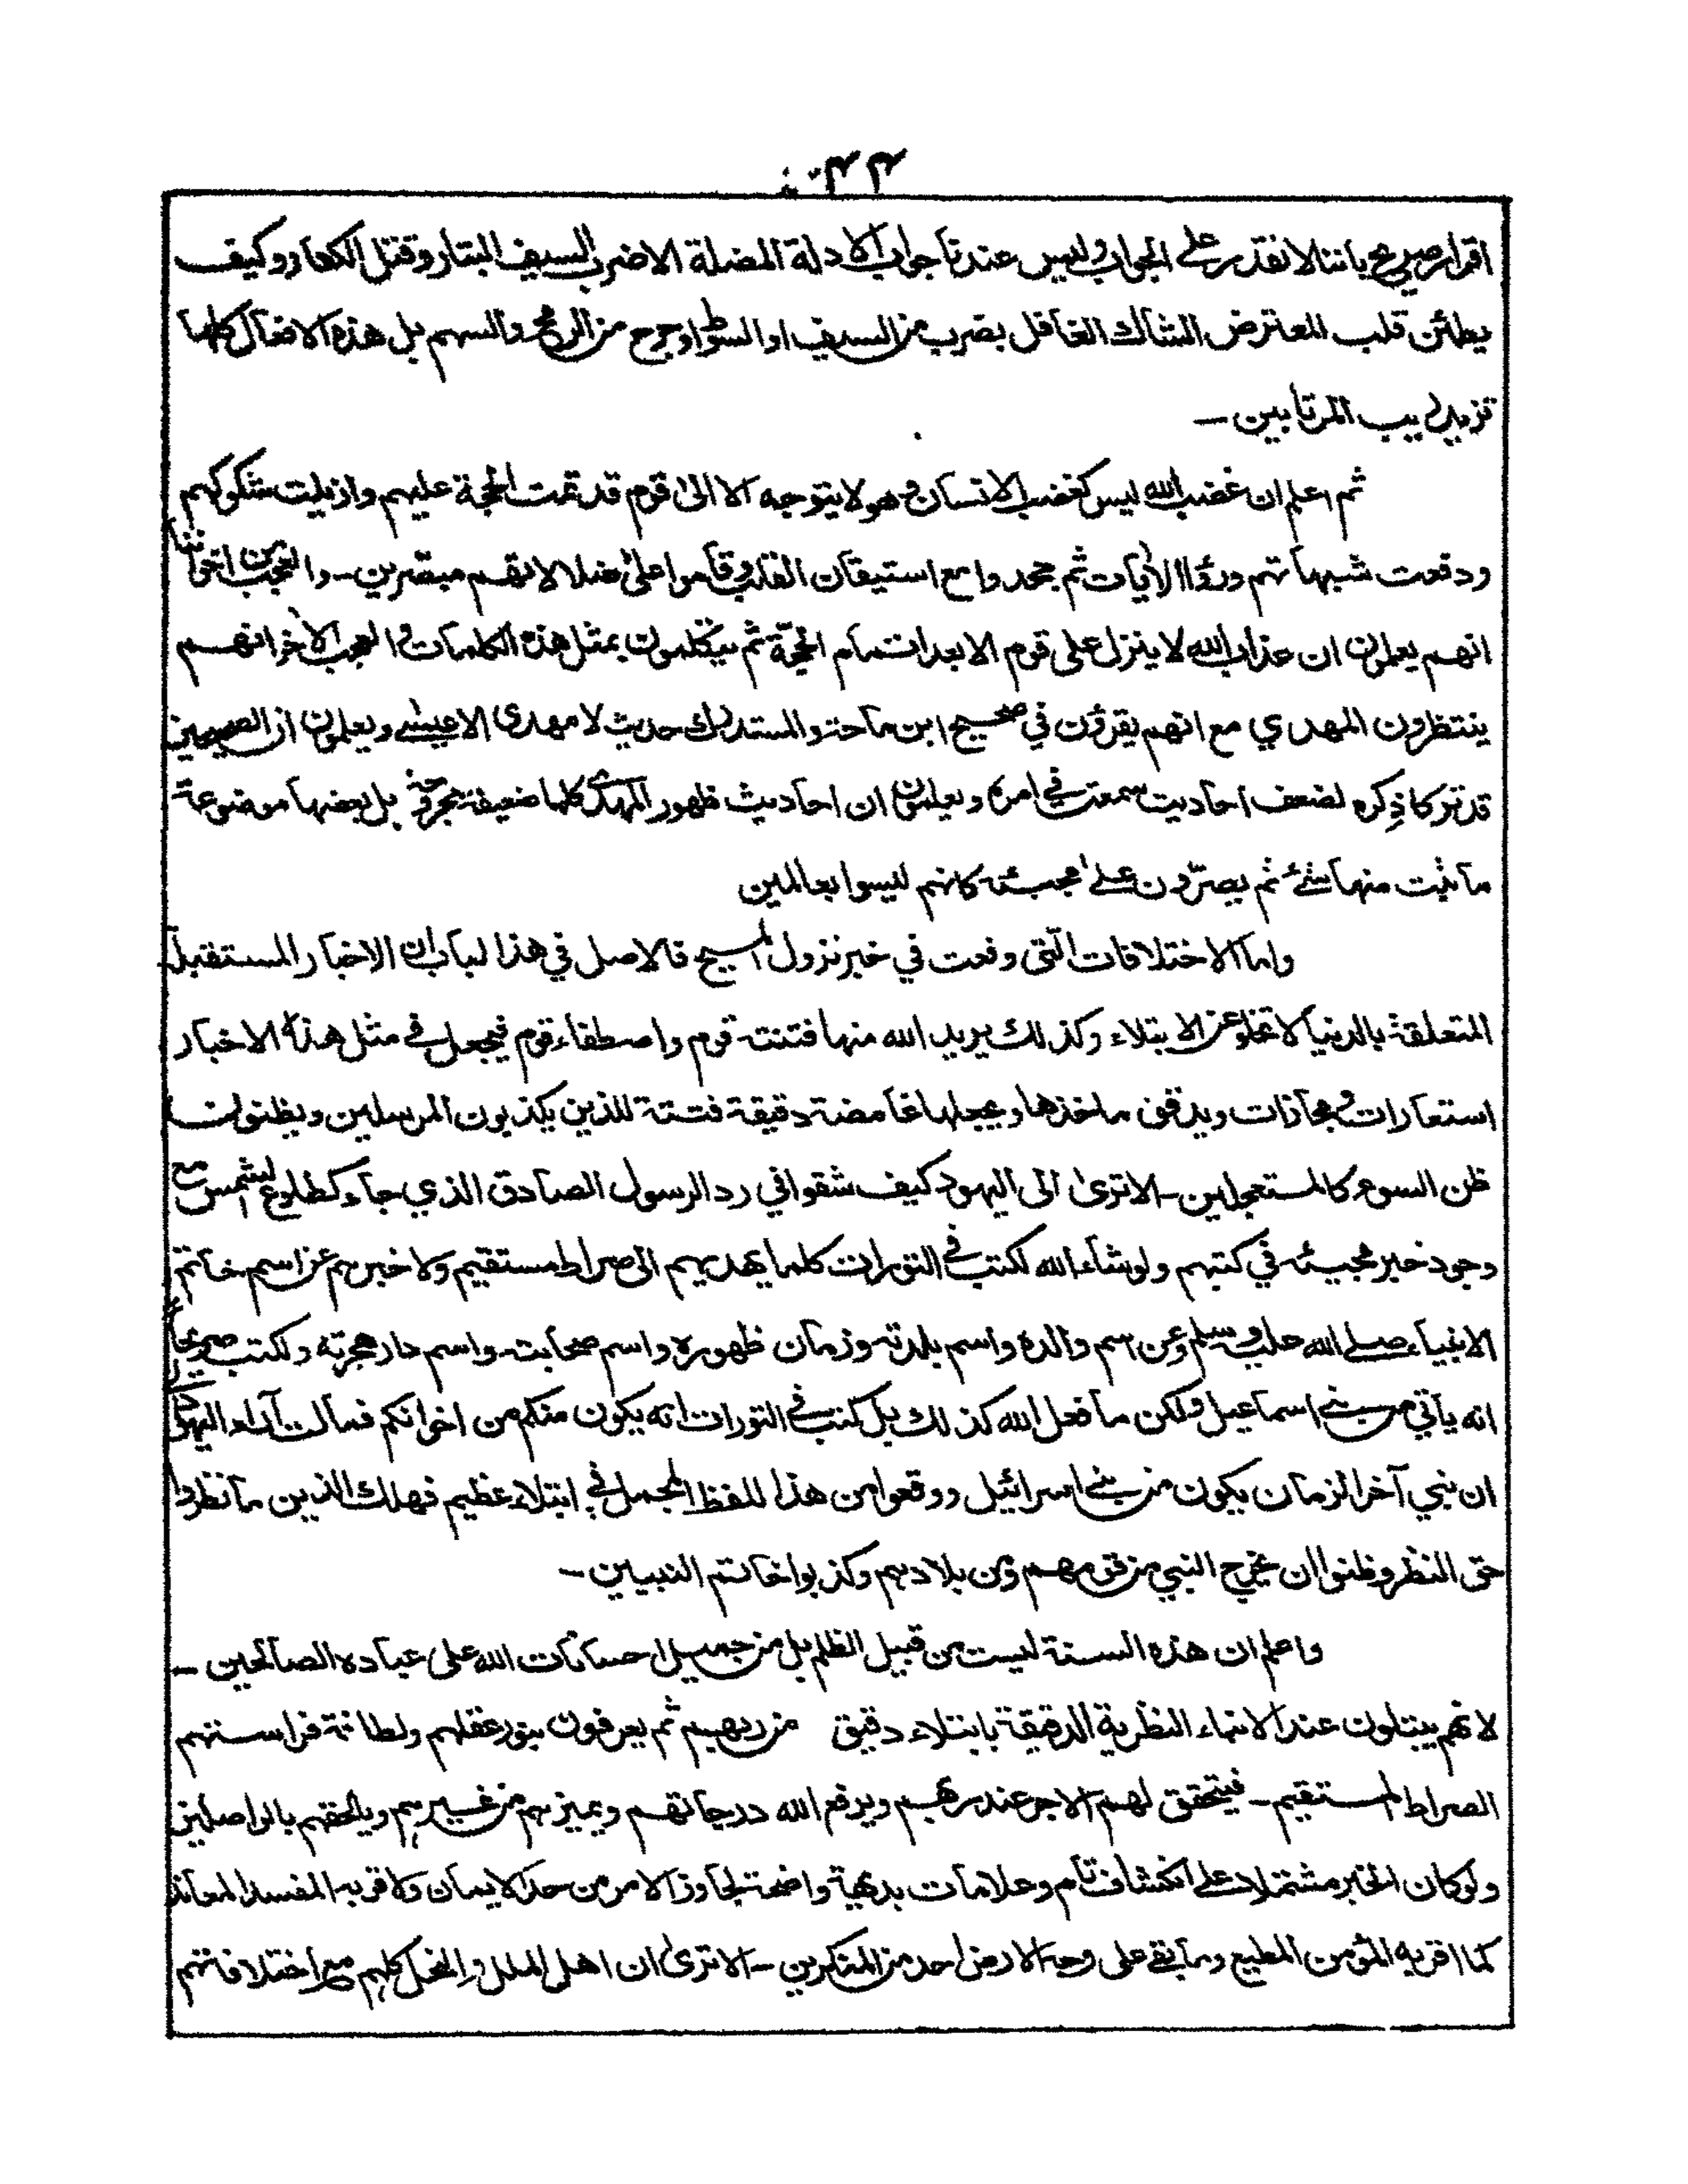 اقرار صريح باننا لا نقدر على الجواب وليس عندنا جواب الادلة المضلة الا ضرب السيف البتار وقتل الكفار وكيف
يطمئن قلب المعترض الشاك الغافل بضرب من السيف او السوط او جرح من الرمح والسهم بل هذه الافعال كلها
تزيد ريب المرتابين ـ
ثم اعلم ان غضب الله ليس كغضب الانسان وهو لا يتوجه الا الى قوم قد تمت الحجة عليهم وازيلت شكوكهم
ودفعت شبهاتهم ورؤا الآيات ثم جحدوا مع استيقان القلب وقاموا على ضلالاتهم مبصرين ـ والعجب من اخواننا
انهم يعلمون ان عذاب الله لا ينزل على قوم الا بعد اتمام الحجّة ثم يتكلمون بمثل هذه الكلمات والعجب الآخر انهم
ينتظرون المهدي مع انهم يقرؤن في صحيح ابن ماجة والمستدرك حديث لا مهدى الا عيسٰى ويعلمون ان الصحيحين
قد تركا ذِكره لضعف احاديث سمعت في امره ويعلمون ان احاديث ظهور المهدى كلها ضعيفة مجروحة بل بعضها موضوعة
ما ثبت منها شئ ثم يصرّون على مجيئه كانهم ليسوا بعالمين
واما الاختلافات التى وقعت في خبر نزول المسيح فالاصل في هذا الباب ان الاخبار المستقبلة
المتعلقة بالدنيا لا تخلو عن الابتلاء وكذلك يريد الله منها فتنة قوم واصطفاء قوم فيجعل في مثل هذه الاخبار
استعارات ومجازات ويدقق ماخذها ويجعلها غامضة دقيقة فتنة للذين يكذبون المرسلين ويظنون
ظن السوء كالمستعجلين ـ الا ترى الى اليهود كيف شقوا في رد الرسول الصادق الذي جاء كطلوع الشمس مع
وجود خبر مجيئه في كتبهم ولو شاء الله لكتب في التورات كلما يهديهم الى صراط مستقيم ولاخبرهم عن اسم خاتم
الانبياء صلى الله عليه وسلم وعن اسم والده واسم بلدته وزمان ظهوره واسم صحابته واسم دار هجرته ولكتب صريحًا
انه يأتي من بني اسماعيل ولكن ما فعل الله كذلك بل كتب في التورات انه يكون منكم من اخوانكم فمالت آراء اليهود الى
ان نبي آخر الزمان يكون من بني اسرائيل ووقعوا من هذا اللفظ المجمل في ابتلاء عظيم فهلك الذين ما نظروا
حق النظر وظنوا ان يخرج النبي من قومهم ومن بلادهم وكذبوا خاتم النبيين ـ
واعلم ان هذه السنة ليست من قبيل الظلم بل من جميل احسانات الله على عباده الصالحين ـ
لانهم يبتلون عند الانباء النظرية الدقيقة بابتلاء دقيق من ربهم ثم يعرفون بنور عقلهم ولطافة فراستهم
الصراط المستقيم ـ فيتحقق لهم الاجر عند ربهم ويرفع الله درجاتهم ويميزهم من غيرهم ويلحقهم بالواصلين
ولو كان الخبر مشتملا على انكشاف تام وعلامات بديهية واضحة لجاوز الامر من حد الايمان ولاقر به المفسد المعاند
كما اقر به المؤمن المطيع وما بقي على وجه الارض احد من المنكرين ـ الا ترى ان اهل الملل والنحل كلهم مع اختلافاتهم